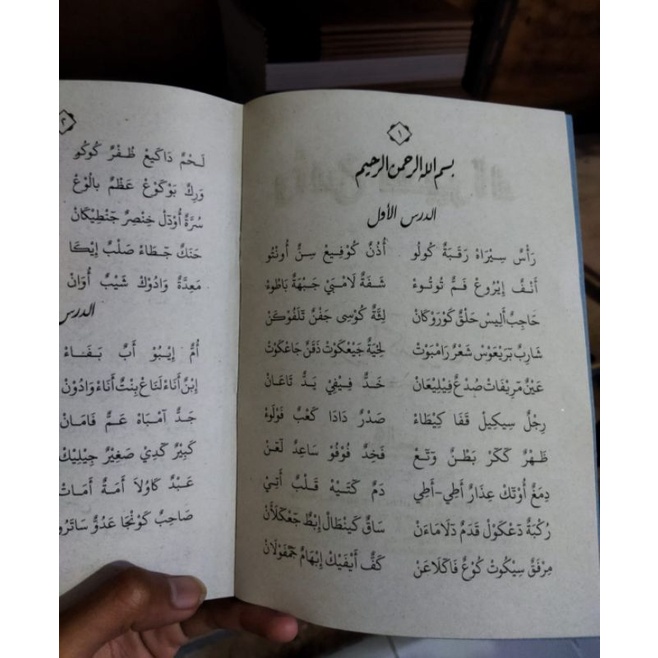 ١
بسم الله الرحمن الرحيم
الدرس الأول
رَأْسٌ سِيْرَاهْ رَقَبَةٌ كُولُو أُذُنٌ كُوْفِيعْ سِنٌّ أُونْتُو
أَنْفٌ إِيْرُوعْ فَمٌ تُوتُوءْ شَفَةٌ لَامْبَيْ جَبْهَةٌ بَاطُوءْ
حَاجِبٌ أَلِيسْ حَلْقٌ كُورُوكَانْ لِثَةٌ كُوْسِى جَفْنٌ تَلَفُوكَنْ
شَارِبٌ بَرَيْعَوْسْ شَعْرٌ رَامْبُوتْ لِحْيَةٌ جَيْعْكَوْتْ ذَقَنٌ جَاعْكَوْتْ
عَيْنٌ مَرِيْفَاتْ صُدْغٌ فِيلِيْعَانْ خَدٌّ فِيْفِيْ يَدٌ تَاعَانْ
رِجْلٌ سِيكِيلْ قَفَا كِيْطَاءْ صَدْرٌ دَادَا كَعْبٌ فَوْلَوءْ
ظَهْرٌ كَكَرْ بَطْنٌ وَتَعْ فَخِذٌ فُوْفُوْ سَاعِدٌ لَعَنْ
دِمَغٌ أُوْتَكْ عِذَارٌ أَطِي-أَطِي دَمٌ كَتِيْهْ قَلْبٌ أَتِيْ
رُكْبَةٌ دَعْكَوْلْ قَدَمٌ دَلَامَاءَنْ سَاقٌ كَيَنْطَالْ إِبْطٌ جَعْكَلَانْ
مِرْفَقٌ سِيْكُوتْ كُوْعٌ فَاكَلَاعَنْ كَفٌّ أَيْفَيْكْ إِبْهَامٌ جَمْفَوْلَانْ
٢
لَحْمٌ دَاكِيْعْ ظُفْرٌ كُوكُو
وَرِكٌ بَوْكَوْعْ عَظْمٌ بَالُوْعْ
سُرَّةٌ أُوْدَلْ خِنْصِرٌ جَنْطِيْكَانْ
حَنَكٌ جَطَاءْ صُلْبٌ إِيْكَا
مَعِدَةٌ وَادُوْكْ شَيْبٌ أُوَانْ
الدرس
أُمٌّ إِيْبُوْ أَبٌ بَفَاءْ
إِبْنٌ أَنَاءْ لَنَاعْ بِنْتٌ أَنَاءْ وَادَوْنْ
جَدٌّ أَمْبَاهْ عَمٌّ فَامَانْ
كَبِيْرٌ كَدَيْ صَغِيْرٌ جِيْلِيْكْ
عَبْدٌ كَاوُلَا أَمَةٌ أَمَاتْ
صَاحِبٌ كَوْنْجَا عَدُوٌّ سَاتَرُو